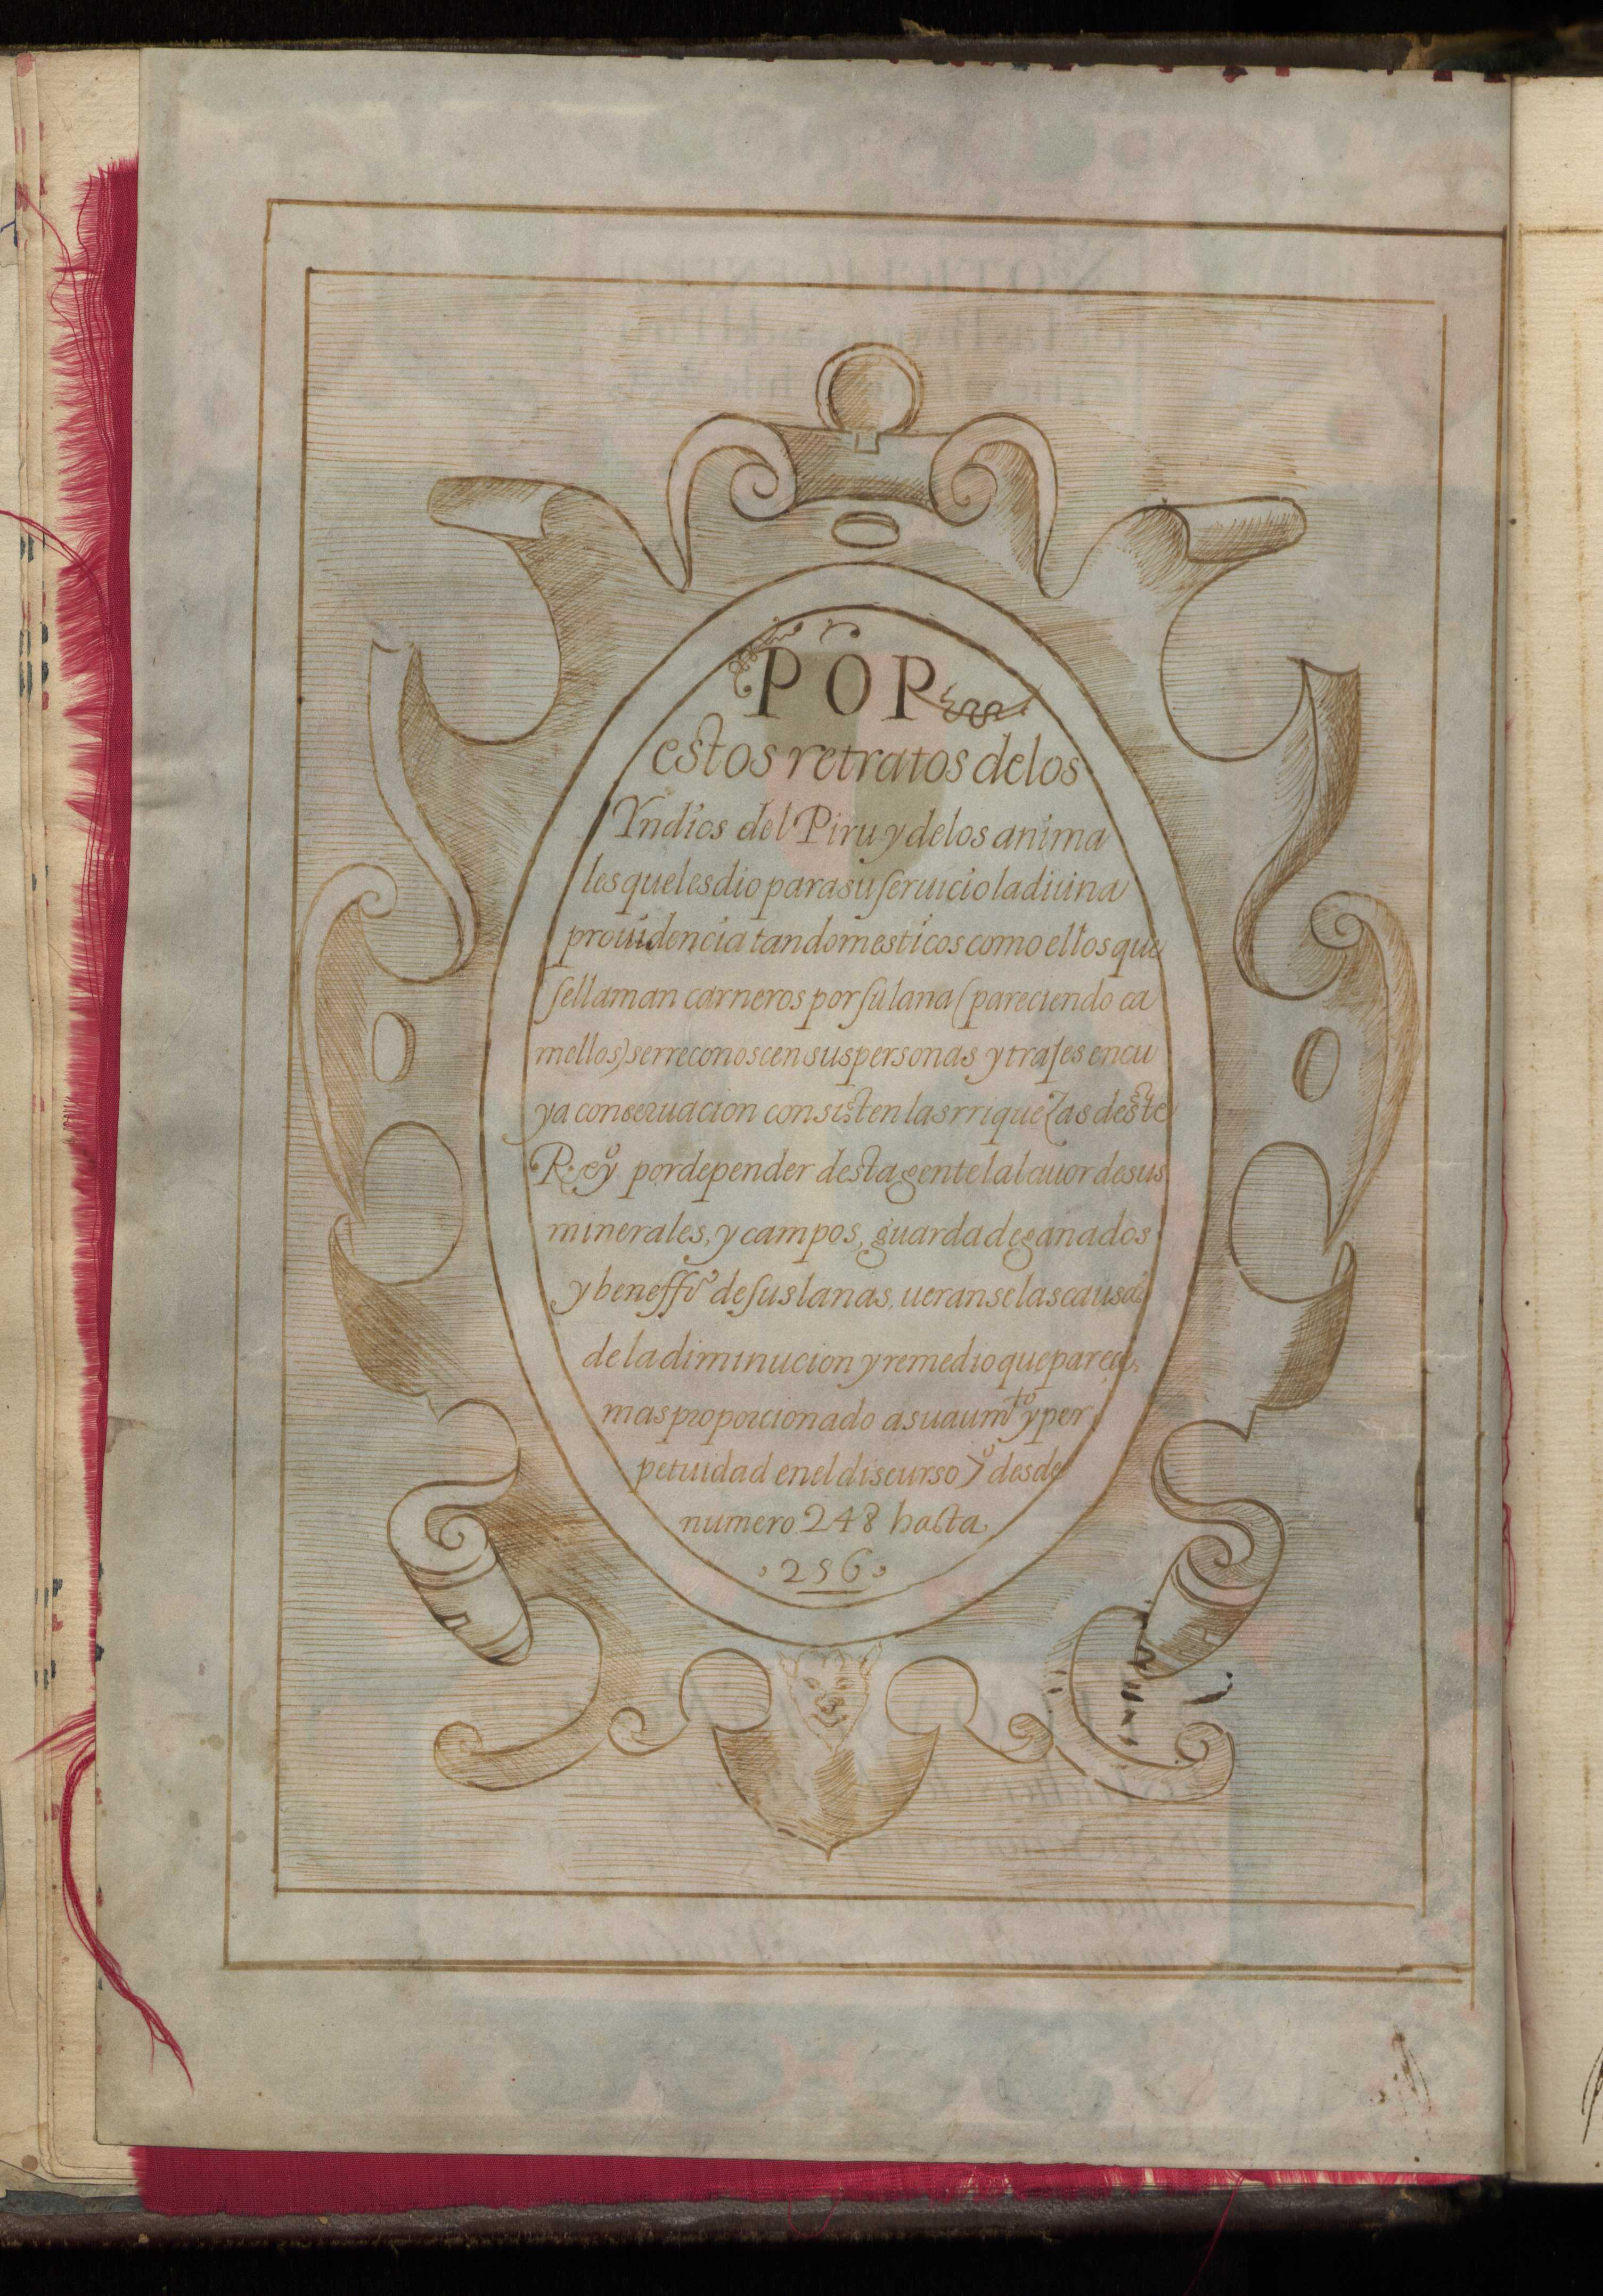 POR
estos retratos delos
Yndios del Piru y delos anima
les queles dio para su seruicio la diuina
prouidencia tan domesticos como ellos que
se llaman carneros por su lana (pareciendo ca
mellos) se rreconoscen sus personas y trajes en cu
ya conseruacion consisten las rriquezas deste
Reyº por depender desta gente la lauor de sus
minerales, y campos, guarda de ganados
y beneffiº de sus lanas, ueranse las causas
de la diminucion y remedio que parece
mas proporcionado a su aumto y per
petuidad en el discurso 7º desde
numero 248 hasta
.256.